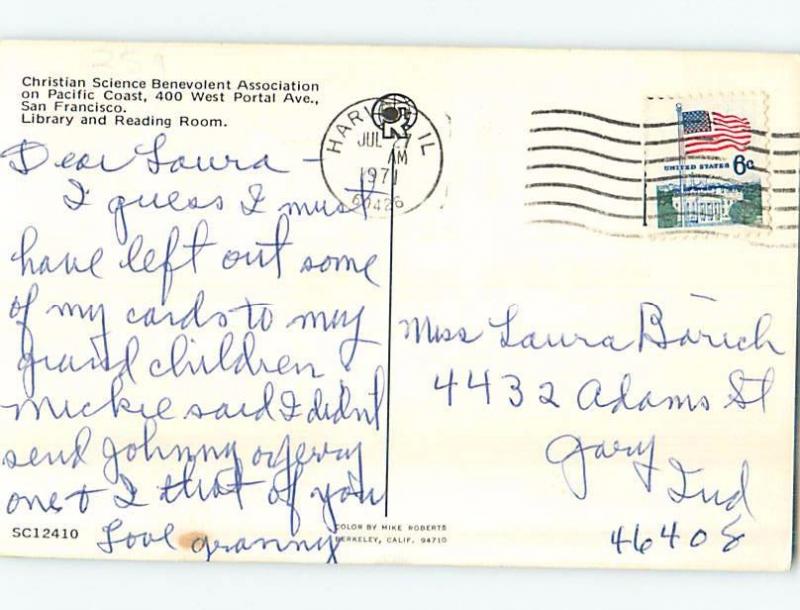 Christian Science Benevolent Association
on Pacific Coast, 400 West Portal Ave.,
San Francisco.
Library and Reading Room.
HARVEY IL
JUL 27
AM
1971
60426
UNITED STATES 6c
Dear Laura –
I guess I must
have left out some
of my cards to my
grand children
Mickie said I didn't
send Johnny or Jerry
one & I that of you
Love granny
Miss Laura Barich
4432 Adams St
Gary
Ind
46408
SC12410
COLOR BY MIKE ROBERTS
BERKELEY, CALIF. 94710